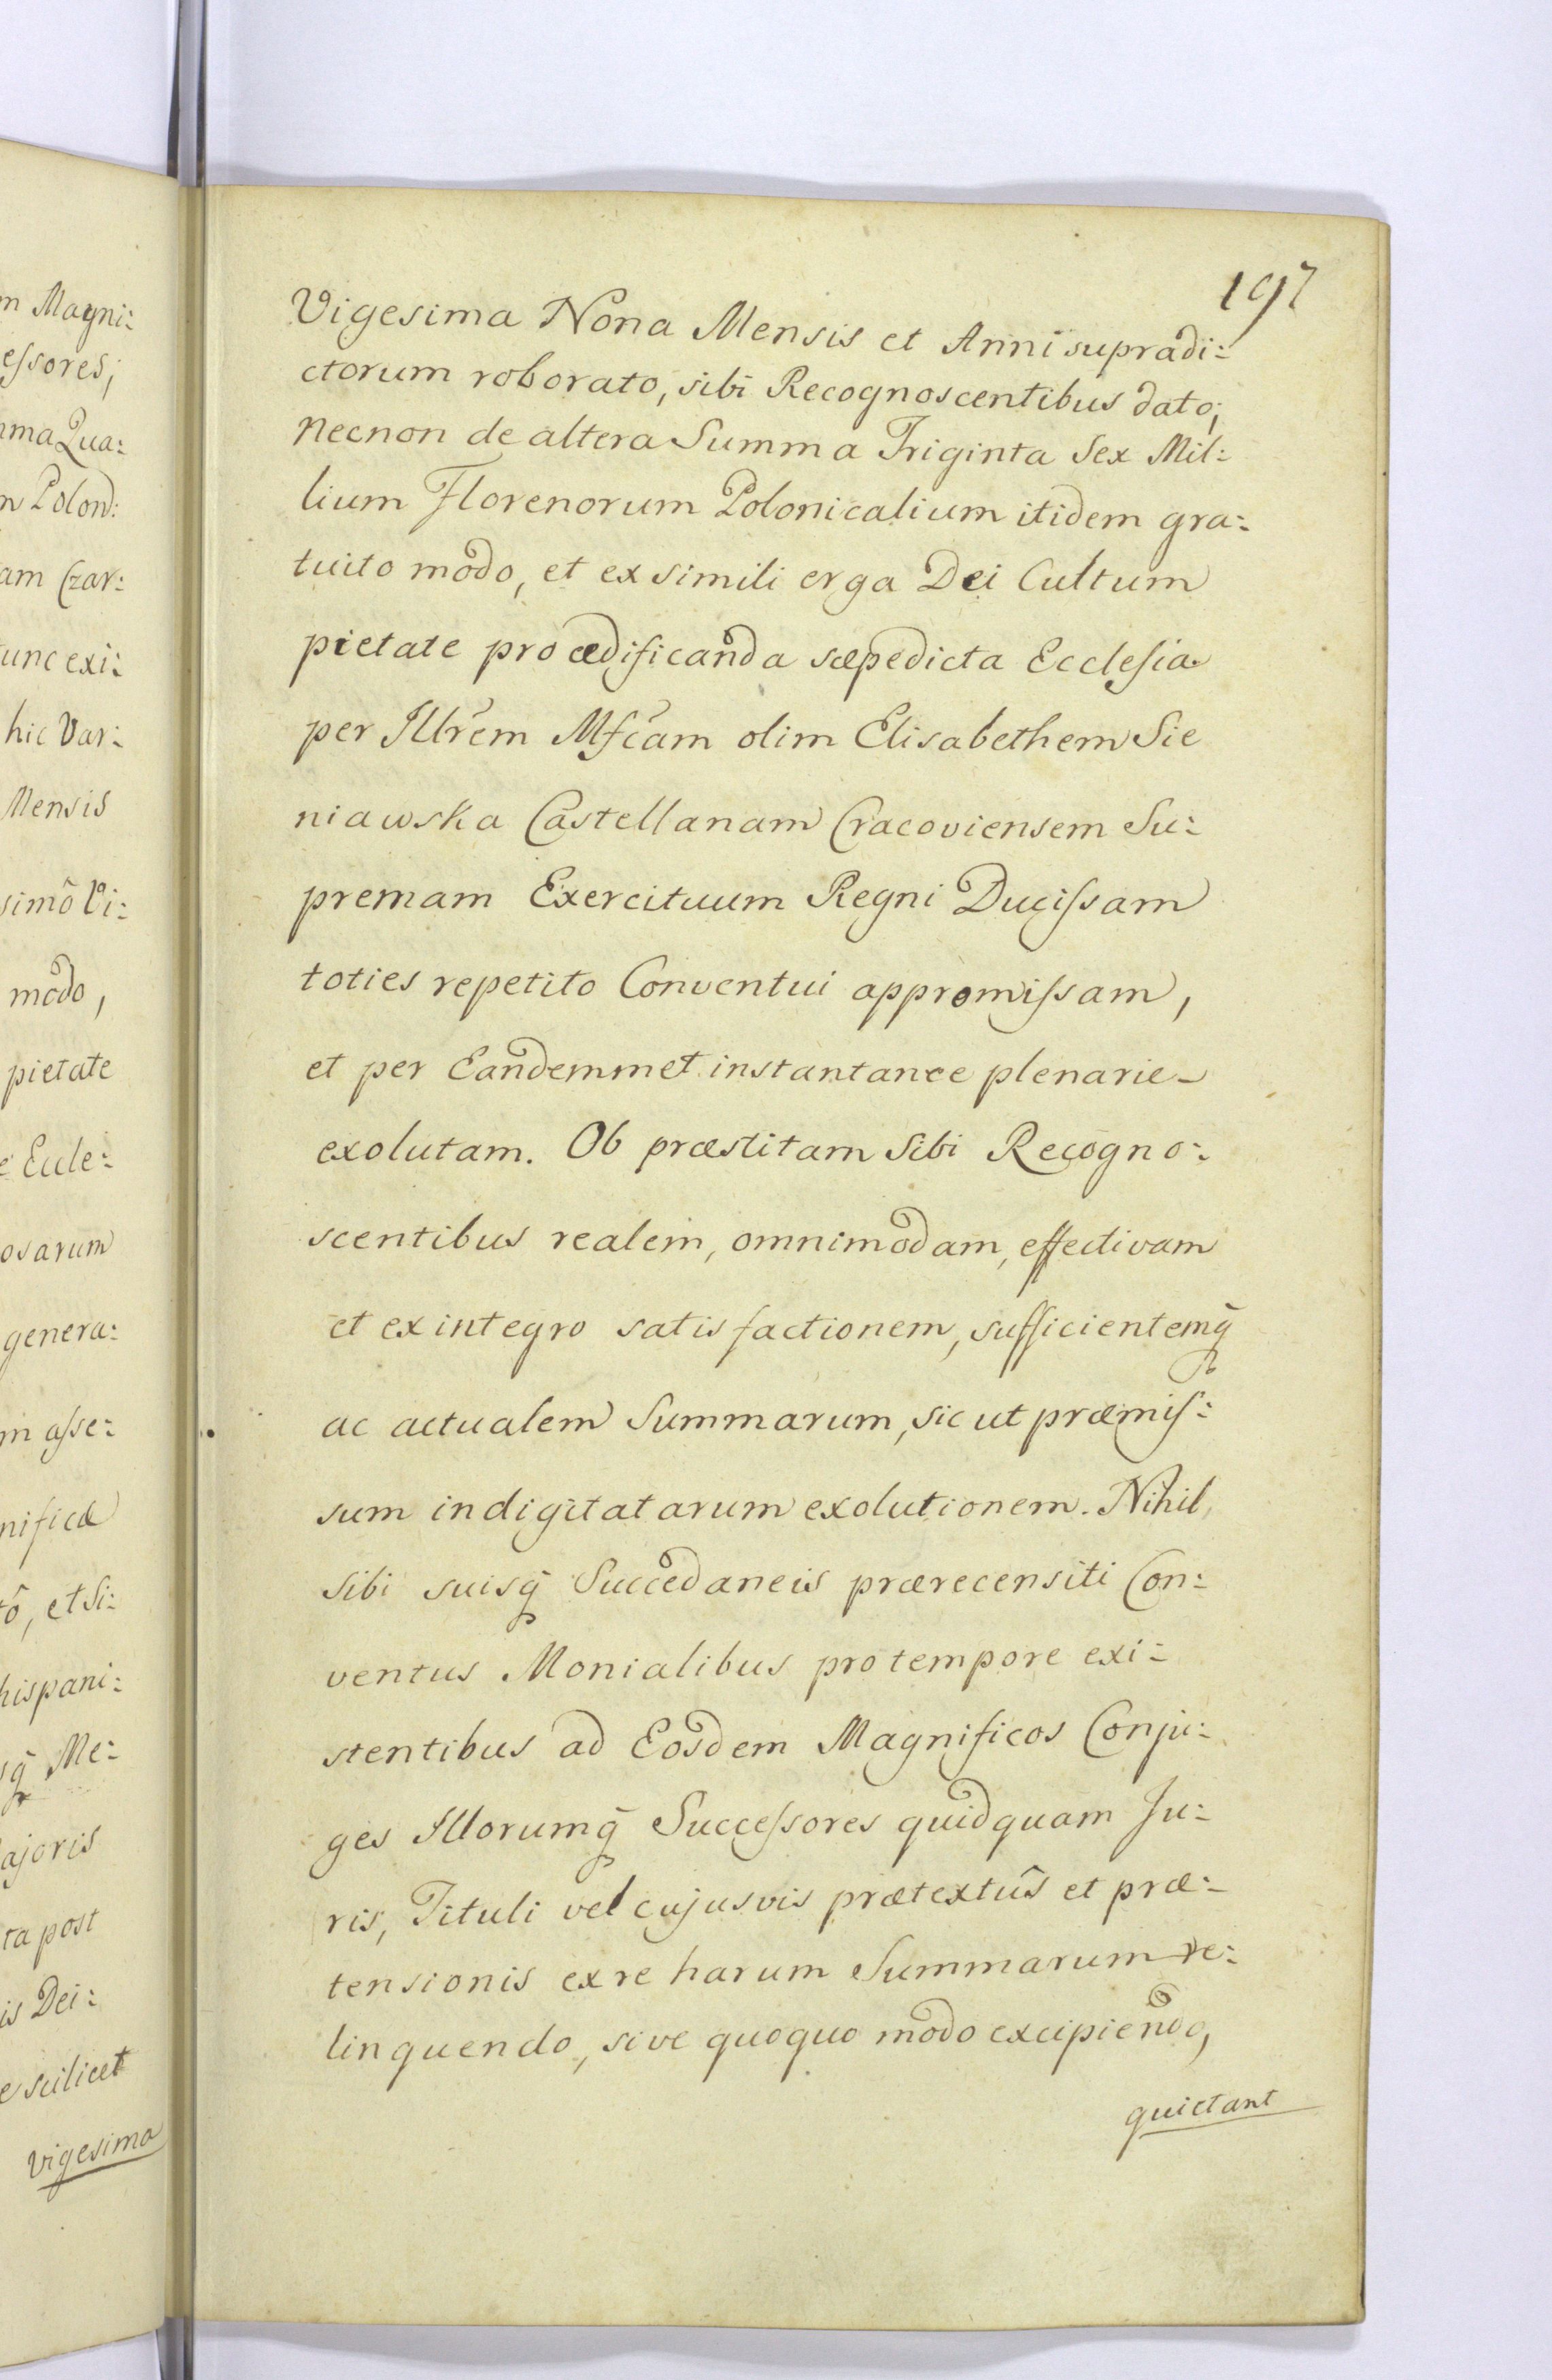 m Magni:
essores;
mma Qua:
m Polond:
am Czar:
tunc exi:
hic Var:
Mensis
simô Vi:
modo,
pietate
e Eccle:
osarum
genera:
m asse:
nificæ
tô, et Si:
hispani:
sq̃ Me:
ajoris
ta post
is Dei:
e scilicet
vigesima
197
Vigesima Nona Mensis et Anni supradi:
ctorum roborato, sibi Recognoscentibus dato;
necnon de altera Summa Triginta Sex Mil:
lium Florenorum Polonicalium itidem gra:
tuito modo, et ex simili erga Dei Cultum
pietate pro ædificanda sæpedicta Ecclesia
per Illrẽm Mfcãm olim Elisabethem Sie
niawska Castellanam Cracoviensem Su:
premam Exercituum Regni Ducissam
toties repetito Conventui appromissam,
et per Eandemmet instantanee plenarie
exolutam. Ob præstitam Sibi Recogno:
scentibus realem, omnimodam, effectivam
et ex integro satisfactionem, sufficientemq̃
ac actualem Summarum, sic ut præmis:
sum indigitatarum exolutionem. Nihil
Sibi suisq̃ Succedaneis prærecensiti Con:
ventus Monialibus pro tempore exi:
stentibus ad Eosdem Magnificos Conju:
ges Illorumq̃ Successores quidquam Ju:
ris, Tituli vel cujusvis prætextûs et præ:
tensionis ex re harum Summarum re:
linquendo, sive quoquo modo excipiendo,
quietant